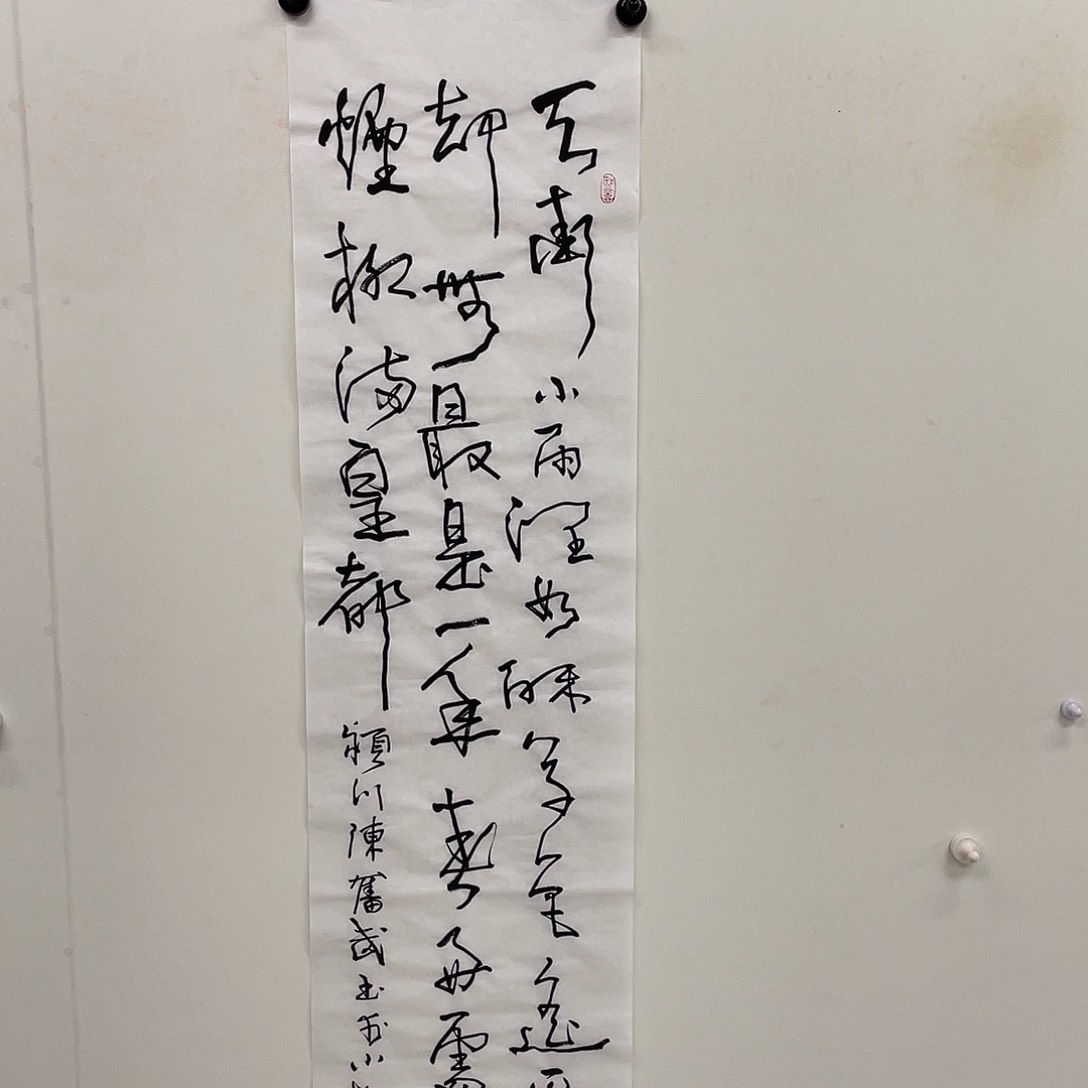 天街小雨潤如酥草色遙
却無最是一年春好處
煙柳滿皇都
潁川陳奮武書於小